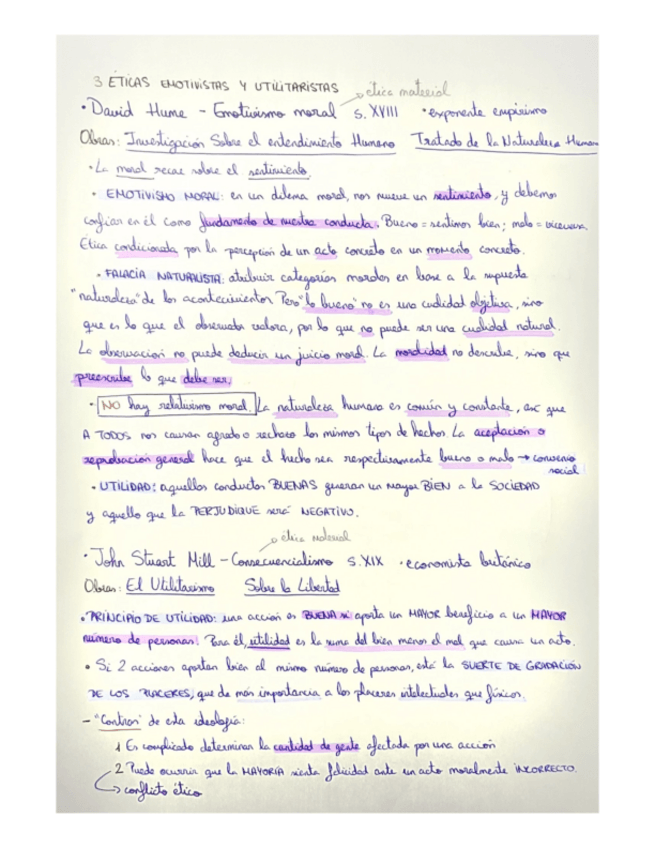 3 ÉTICAS EMOTIVISTAS Y UTILITARISTAS
ética material
· David Hume - Emotivismo moral s. XVIII · exponente empirismo
Obras: Investigación Sobre el entendimiento Humano Tratado de la Naturaleza Humana
· La moral recae sobre el sentimiento.
· EMOTIVISMO MORAL: en un dilema moral, nos mueve un sentimiento, y debemos
confiar en él como fundamento de nuestra conducta. Bueno = sentirnos bien; malo = viceversa.
Ética condicionada por la percepción de un acto concreto en un momento concreto.
· FALACIA NATURALISTA: atribuir categorías morales en base a la supuesta
"naturaleza" de los acontecimientos. Pero "lo bueno" no es una cualidad objetiva, sino
que es lo que el observador valora, por lo que no puede ser una cualidad natural.
La observación no puede deducir un juicio moral. La moralidad no describe, sino que
preescribe lo que debe ser.
· NO hay relativismo moral. La naturaleza humana es común y constante, así que
A TODOS nos causan agrado o rechazo los mismos tipos de hechos. La aceptación o
reprobación general hace que el hecho sea respectivamente bueno o malo → convenio
social
· UTILIDAD: aquellas conductas BUENAS generan un mayor BIEN a la SOCIEDAD
y aquello que la PERJUDIQUE será NEGATIVO.
ética material
· John Stuart Mill - Consecuencialismo s. XIX · economista británico
Obras: El Utilitarismo Sobre la Libertad
· PRINCIPIO DE UTILIDAD: una acción es BUENA si aporta un MAYOR beneficio a un MAYOR
número de personas. Para él, utilidad es la suma del bien menos el mal que causa un acto.
· Si 2 acciones aportan bien al mismo número de personas, está la SUERTE DE GRADACIÓN
DE LOS PLACERES, que da más importancia a los placeres intelectuales que físicos.
- "Contras" de esta ideología:
1 Es complicado determinar la cantidad de gente afectada por una acción
2 Puede ocurrir que la MAYORÍA sienta felicidad ante un acto moralmente INCORRECTO.
→ conflicto ético